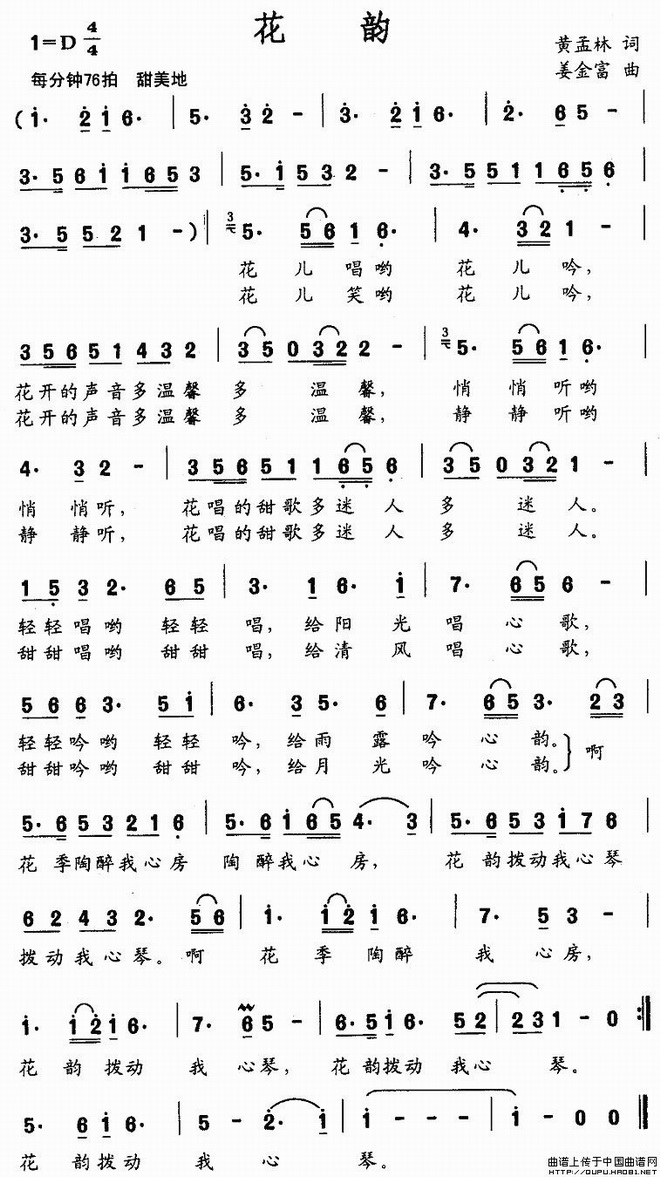 花 韵
1=D 4/4
黄孟林 词
每分钟76拍 甜美地
姜金富 曲
(i· 2 i 6· | 5· 3 2 - | 3· 2 i 6· | 2· 6 5 - |
3· 5 6 i i 6 5 3 | 5· i 5 3 2 - | 3· 5 5 1 1 6 5 6 |
3· 5 5 2 1 - ) | 3 5· 5 6 1 6· | 4· 3 2 1 - |
花 儿 唱 哟 花 儿 吟,
花 儿 笑 哟 花 儿 吟,
3 5 6 5 1 4 3 2 | 3 5 0 3 2 2 - | 3 5· 5 6 1 6· |
花开的声音多温馨 多 温 馨, 悄 悄 听 哟
花开的声音多温馨 多 温 馨, 静 静 听 哟
4· 3 2 - | 3 5 6 5 1 1 6 5 6 | 3 5 0 3 2 1 - |
悄 悄 听, 花唱的甜歌多迷 人 多 迷 人。
静 静 听, 花唱的甜歌多迷 人 多 迷 人。
1 5 3 2· 6 5 | 3· 1 6· i | 7· 6 5 6 - |
轻轻唱哟 轻轻 唱, 给 阳 光 唱 心 歌,
甜甜唱哟 甜甜 唱, 给 清 风 唱 心 歌,
5 6 6 3· 5 i | 6· 3 5· 6 | 7· 6 5 3· 2 3 |
轻轻吟哟 轻轻 吟, 给 雨 露 吟 心 韵。 啊
甜甜吟哟 甜甜 吟, 给 月 光 吟 心 韵。
5· 6 5 3 2 1 6 | 5· 6 i 6 5 4· 3 | 5· 6 5 3 i 7 6 |
花 季陶醉我心房 陶 醉我心 房, 花 韵拨动我心琴
6 2 4 3 2· 5 6 | i· i 2 i 6· | 7· 5 3 - |
拨动我心琴。 啊 花 季 陶 醉 我 心 房,
i· i 2 i 6· | 7· 6 5 - | 6· 5 i 6· 5 2 | 2 3 1 - 0 :||
花 韵 拨 动 我 心 琴, 花 韵拨动 我心 琴。
5· 6 i 6· | 5 - 2· i | i - - - | i - 0 0 ||
花 韵拨动 我 心 琴。
曲谱上传于中国曲谱网
HTTP://QUPU.HAO81.NET